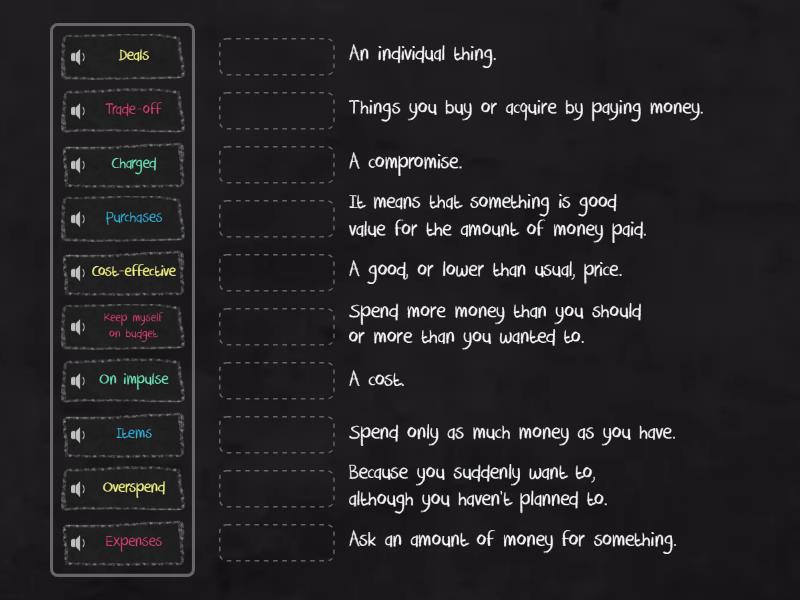 Deals
An individual thing.
Trade-off
Things you buy or acquire by paying money.
Charged
A compromise.
Purchases
It means that something is good
value for the amount of money paid.
Cost-effective
A good, or lower than usual, price.
Keep myself
on budget
Spend more money than you should
or more than you wanted to.
On impulse
A cost.
Items
Spend only as much money as you have.
Overspend
Because you suddenly want to,
although you haven't planned to.
Expenses
Ask an amount of money for something.